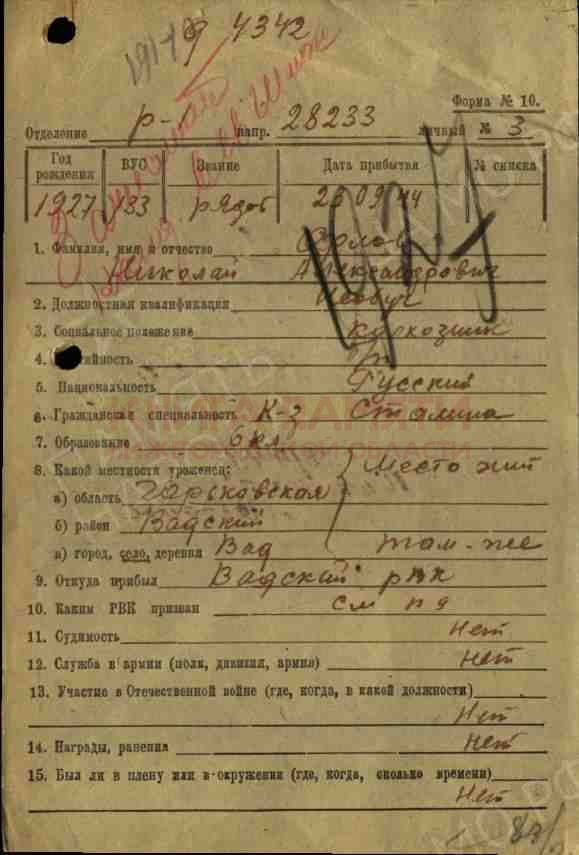 191
9 4342
Форма № 10.
Отделение р- напр. 28233 личный № 3
Год рождения ВУС Звание Дата прибытия № списка
1927 133 рядов 23 09 44
1927
1. Фамилия, имя и отчество Орлов
Николай Александрович
2. Должностная квалификация Необуч
3. Социальное положение колхозник
4. тийность
5. Национальность Русский
6. Гражданская специальность К-з Сталина
7. Образование 6 кл
8. Какой местности уроженец: Место жит
а) область Горьковская
б) район Вадский
в) город, село, деревня Вад там-же
9. Откуда прибыл Вадский рвк
10. Каким РВК призван см п 9
11. Судимость Нет
12. Служба в армии (полк, дивизия, армия) нет
13. Участие в Отечественной войне (где, когда, в какой должности)
Нет
14. Награды, ранения нет
15. Был ли в плену или в окружении (где, когда, сколько времени)
Нет